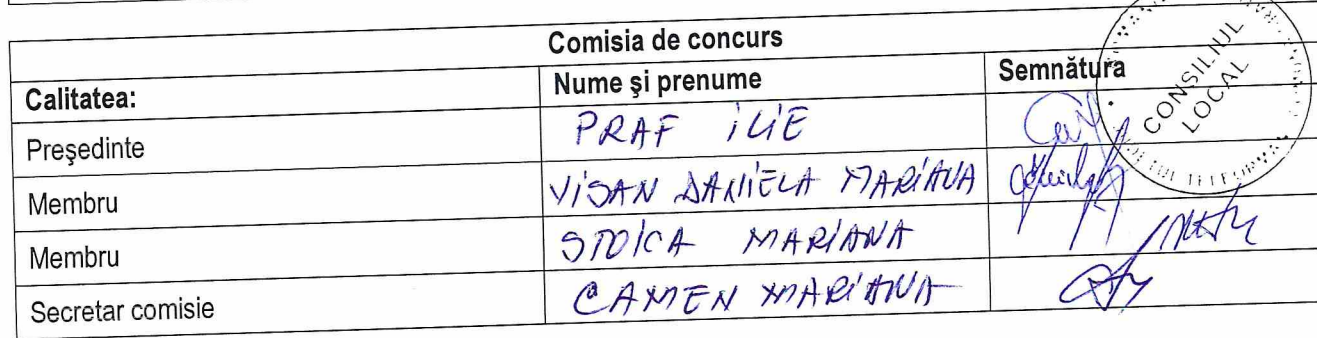 Comisia de concurs
Calitatea: Nume şi prenume Semnătura
Preşedinte PRAF ILIE
Membru VISAN DANIELA MARIANA
Membru STOICA MARIANA
Secretar comisie CAMEN MARIANA
CONSILIUL
LOCAL